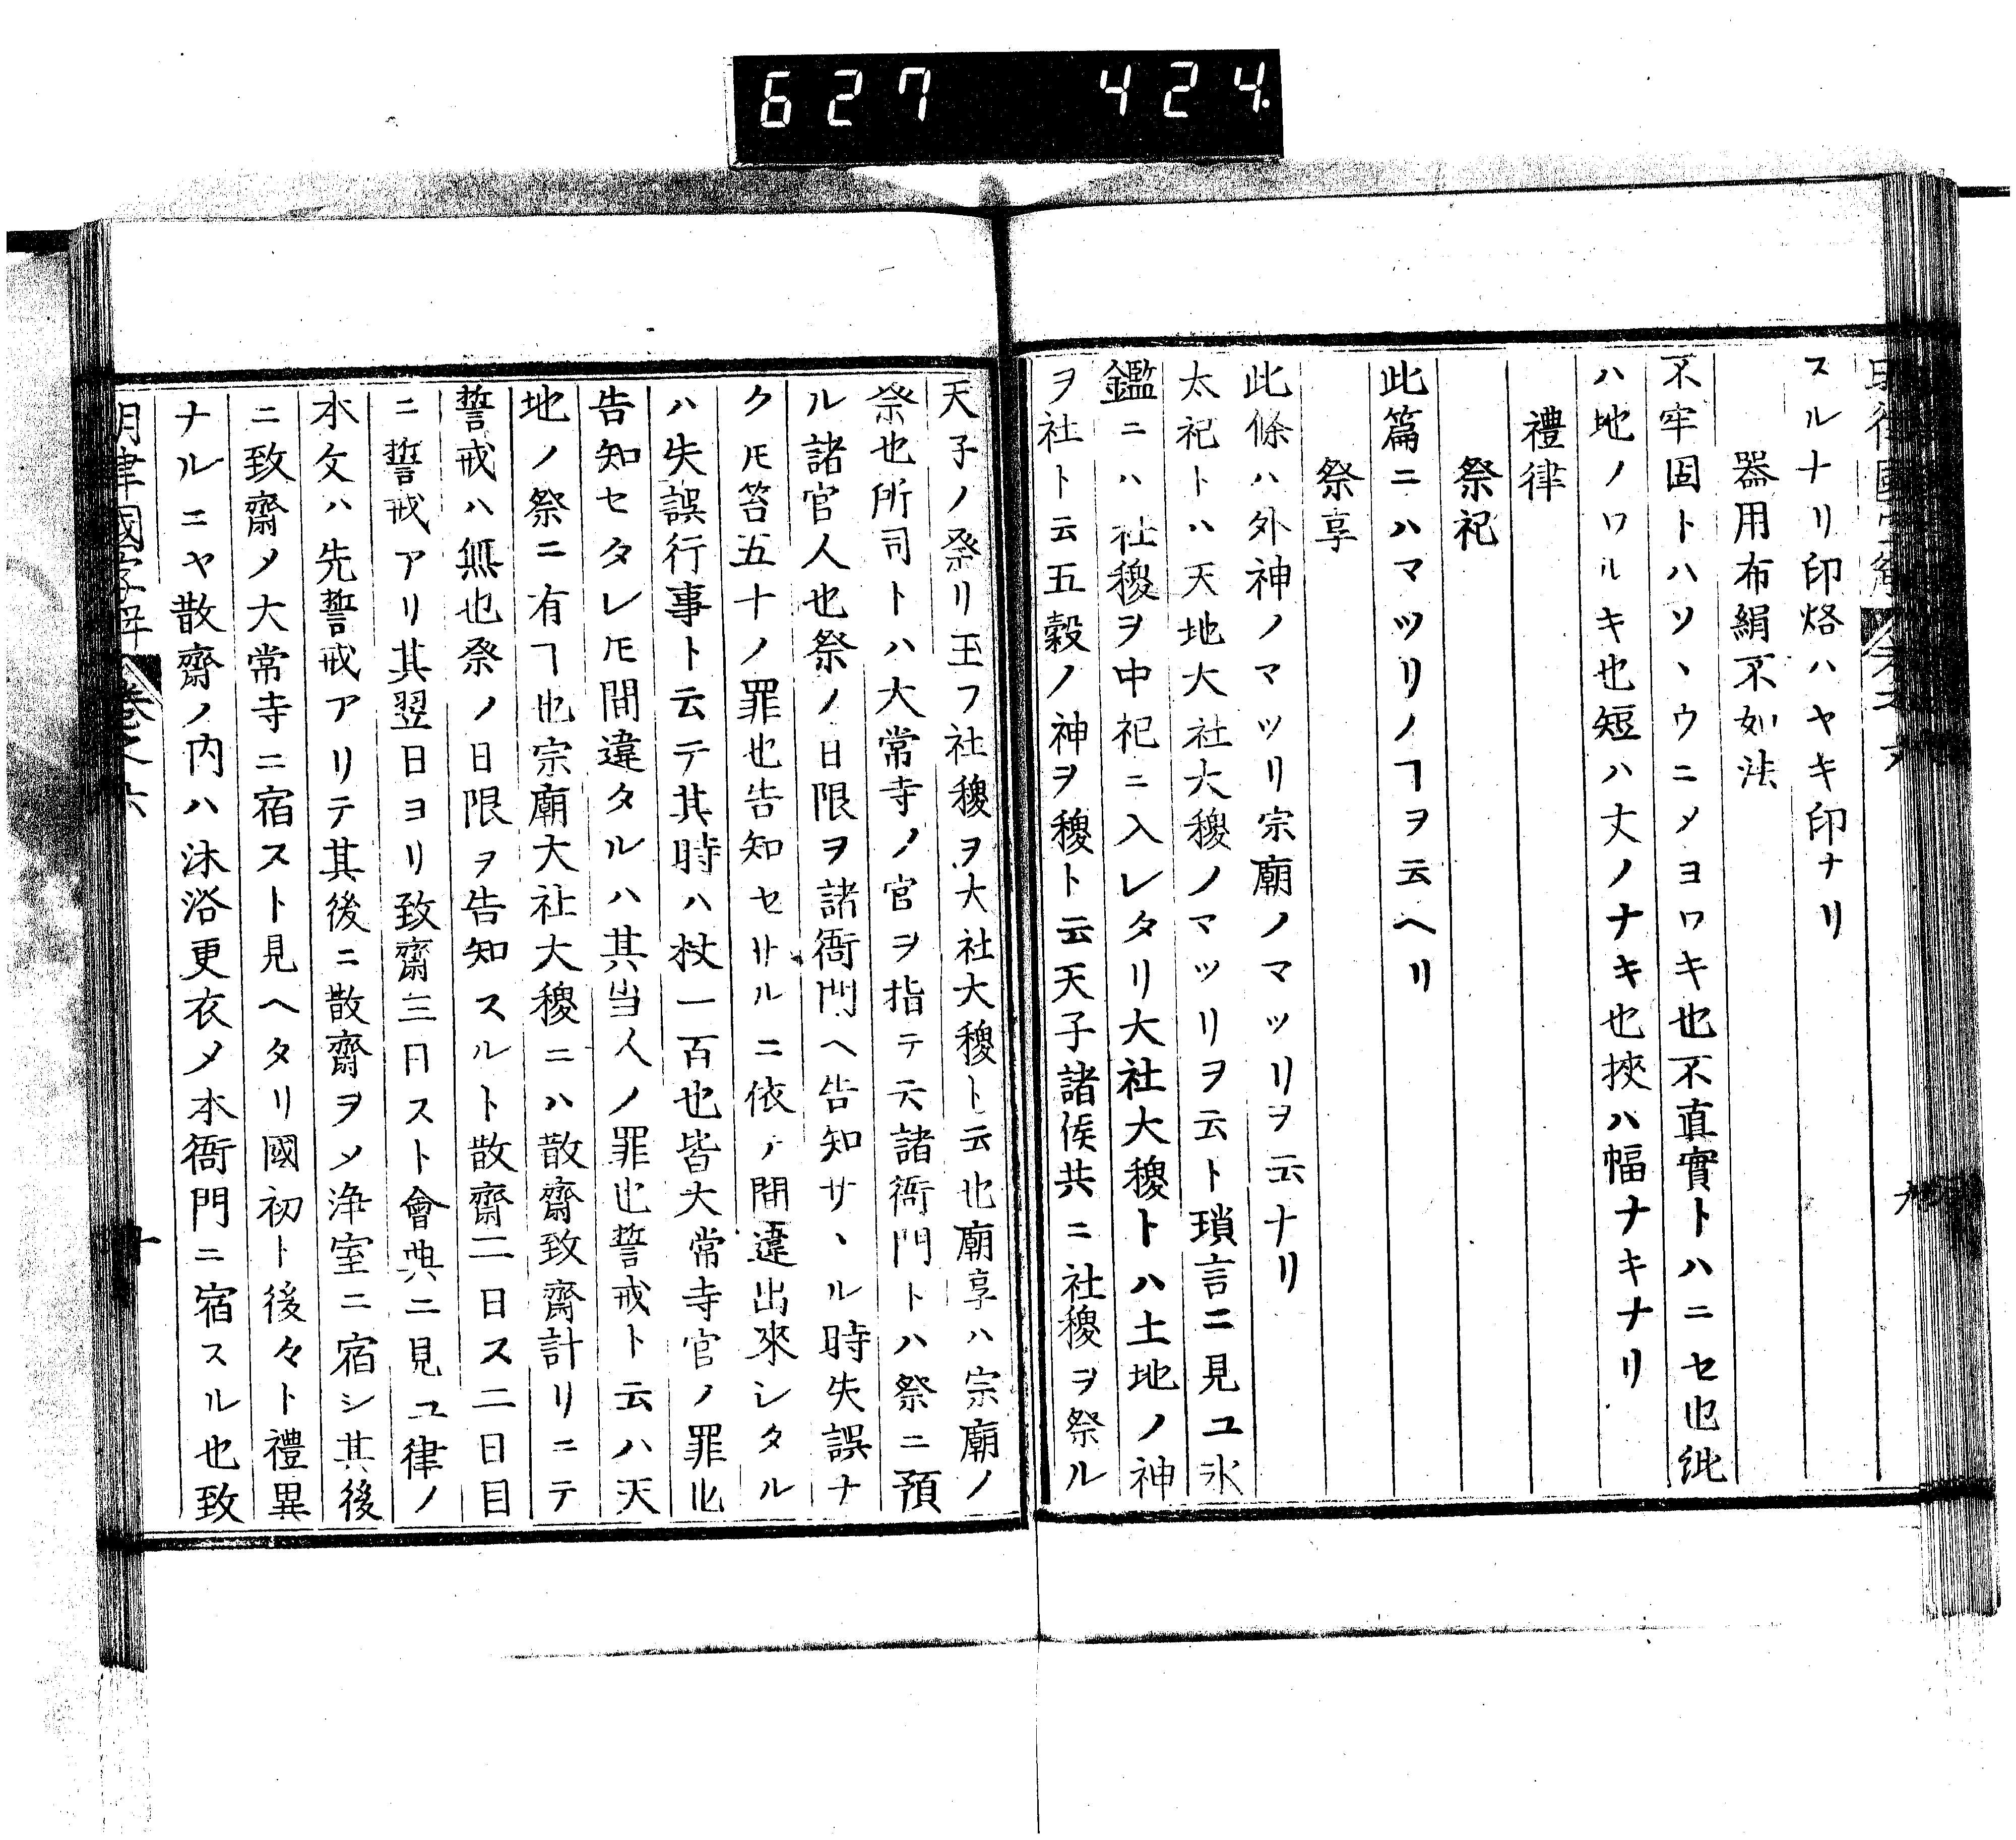 627 424
スルナリ印烙ハヤキ印ナリ
器用布絹不如法
不牢固トハソヽウニメヨワキ也不真實トハニセ也紕
ハ地ノワルキ也短ハ丈ノナキ也挾ハ幅ナキナリ
禮律
祭祀
此篇ニハマツリノヿヲ云ヘリ
祭享
此條ハ外神ノマツリ宗廟ノマツリヲ云ナリ
太祀トハ天地大社大稷ノマツリヲ云ト瑣言ニ見ユ氷
鑑ニハ社稷ヲ中祀ニ入レタリ大社大稷トハ土地ノ神
ヲ社ト云五穀ノ神ヲ稷ト云天子諸侯共ニ社稷ヲ祭ル
天子ノ祭リ玉フ社稷ヲ大社大稷ト云也廟享ハ宗廟ノ
祭也所司トハ大常寺ノ官ヲ指テ云諸衙門トハ祭ニ預
ル諸官人也祭ノ日限ヲ諸衙門ヘ告知サヽル時失誤ナ
クㇳモ笞五十ノ罪也告知セサルニ依テ間違出來シタル
ハ失誤行事ト云テ其時ハ杖一百也皆大常寺官ノ罪也
告知セタレㇳモ間違タルハ其当人ノ罪也誓戒ト云ハ天
地ノ祭ニ有ヿ也宗廟大社大稷ニハ散齋致齋計リニテ
誓戒ハ無也祭ノ日限ヲ告知スルト散齋二日ス二日目
ニ誓戒アリ其翌日ヨリ致齋三日スト會典ニ見ユ律ノ
本文ハ先誓戒アリテ其後ニ散齋ヲメ淨室ニ宿シ其後
ニ致齋メ大常寺ニ宿スト見ヘタリ國初ト後々ト禮異
ナルニヤ散齋ノ内ハ沐浴更衣メ本衙門ニ宿スル也致
明律國字解 卷之六 十